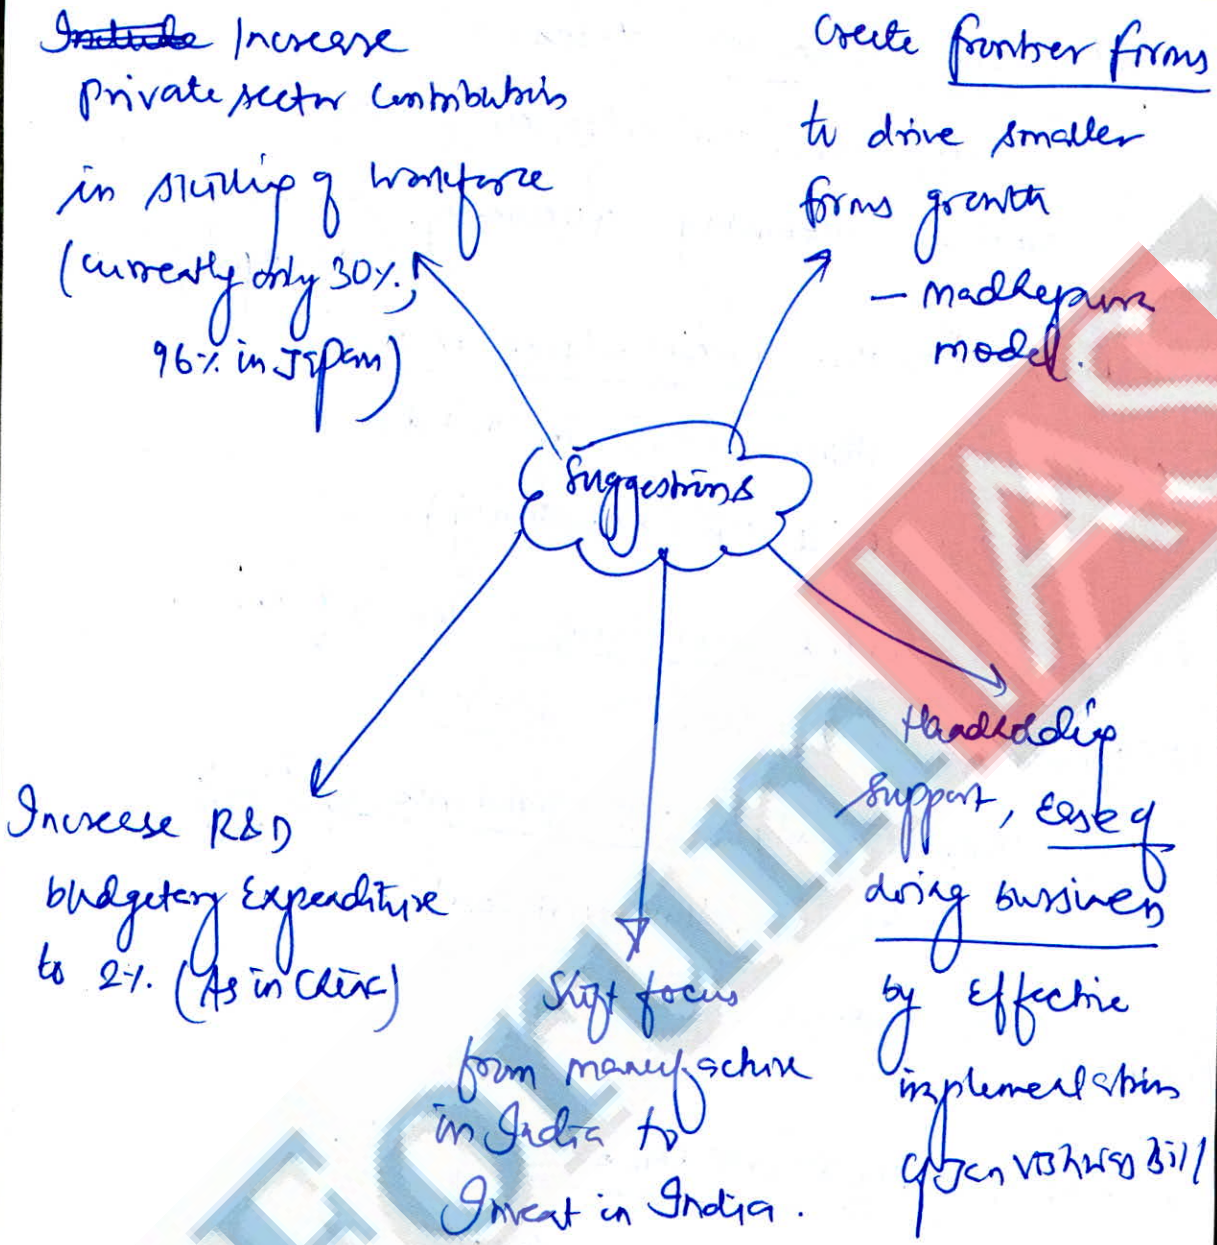 Include Increase
private sector contribution
in skilling of workforce
(currently only 30%,
96% in Japan)
Create frontier firms
to drive smaller
firms growth
– Madhepura
model.
Suggestions
Increase R&D
budgetary Expenditure
to 2%. (As in China)
Shift focus
from manufacture
in India to
Invest in India.
Handholding
support, Ease of
doing bussiness
by Effective
implementation
of Jan Vishwas Bill
Forum IAS